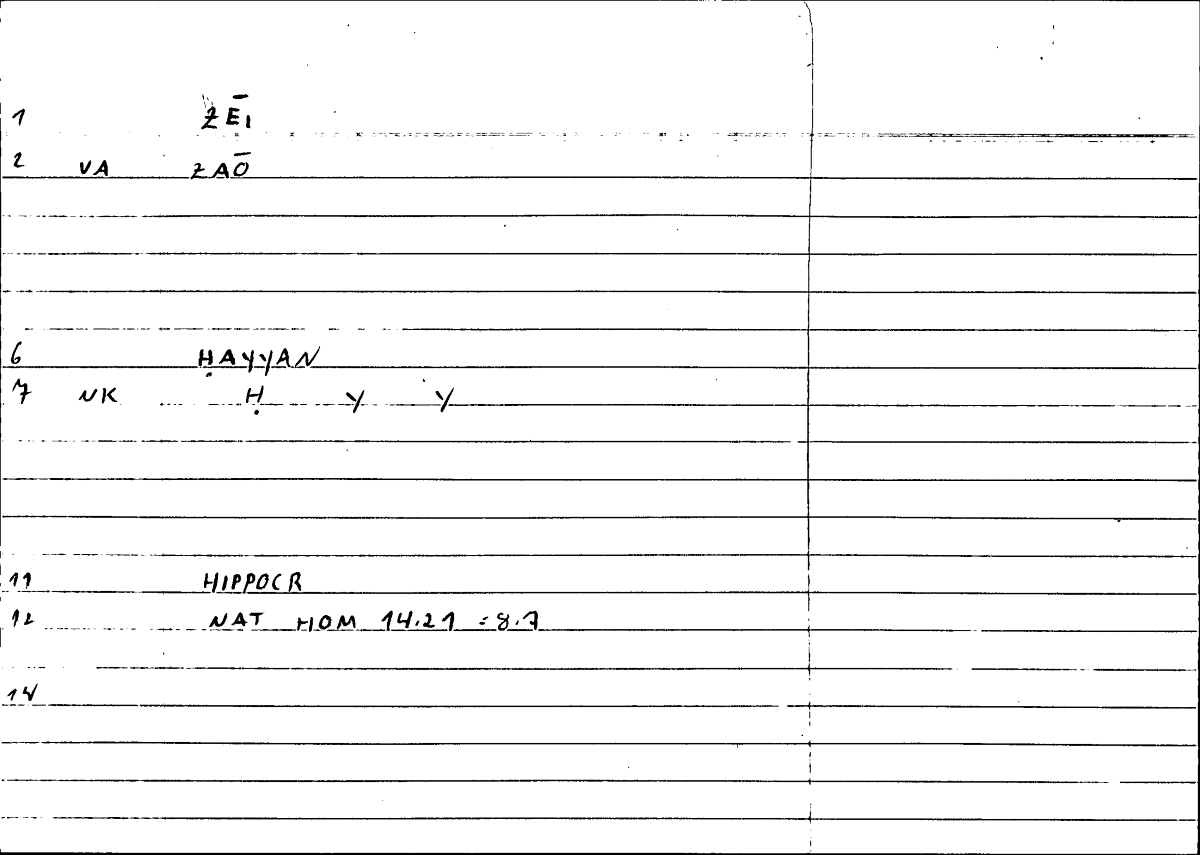 1 ZĒI
2 VA ZAŌ
6 ḤAYYAN
7 NK Ḥ Y Y
11 HIPPOCR
12 NAT HOM 14.21 = 8.7
14